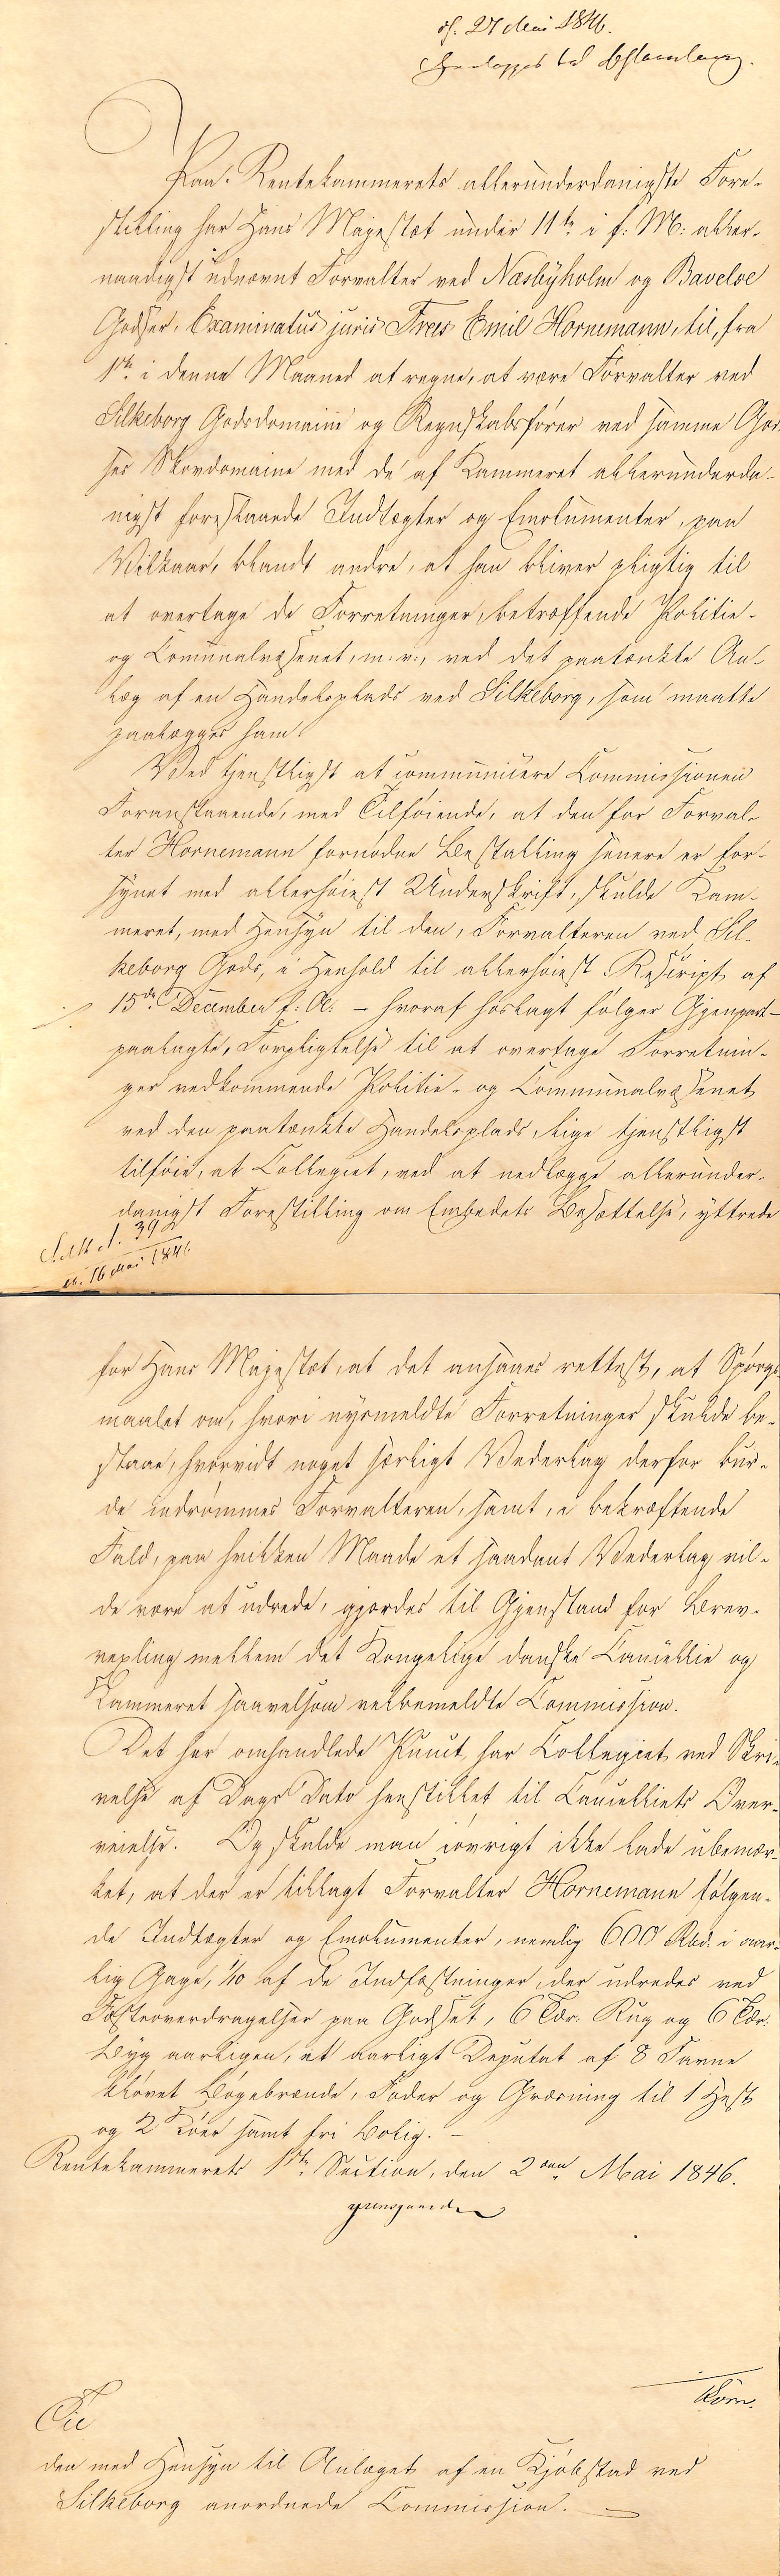 d. 27 Mai 1846.
Paa Rentekammerets allerunderdanigste Fore-
stilling har Hans Majestæt under 11te i f: M: aller-
naadigst udnævnt Forvalter ved Næsbÿholm og Bavelse
Godser, Examinatus juris Frees Emil Hornemann, til, fra
1ste i denne Maaned at regne, at være Forvalter ved
Silkeborg Godsdomaine og Regnskabsfører ved samme God-
ses Skovdomaine med de af Kammeret allerunderda-
nigst foreslaaede Indtægter og Emolumenter, paa
Vilkaar, blandt andre, at han bliver pligtig til
at overtage de Forretninger, betræffende Politie-
og Comunalvæsenet, m. v., ved det paatænkte An-
læg af en Handelsplads ved Silkeborg, som maatte
paalægges ham.
Ved tjenstligst at communicere Commissionen
Foranstaaende, med Tilføiende, at den for Forval-
ter Hornemann fornødne Bestalling senere er for-
synet med allerhøiest Underskrift, skulde Kam-
meret, med Hensyn til den, Forvalteren ved Sil-
keborg Gods, i Henhold til allerhøiest Rescript af
15de December f: A: - hvoraf hoslagt følger Gjenpart -
paalagte, Forpligtelse til at overtage Forretnin-
ger vedkommende Politie- og Communalvæsenet
ved den paatænkte Handelsplads, lige tjenstligst
tilføie, at Collegiet, ved at nedlægge allerunder-
danigst Forestilling om Embedets Besættelse, yttrede
Silk. d. 39
d. 16 Mai 1846
for Hans Majestæt, at det ansaaes rettest, at Spørgs-
maalet om, hvori nysmeldte Forretninger skulde be-
staae, hvorvidt noget særligt Vederlag derfor bur-
de indrømmes Forvalteren, samt, i bekræftende
Fald, paa hvilken Maade et saadant Vederlag vil-
de være at udrede, gjordes til Gjenstand for Brev-
vexling mellem det Kongelige danske Cancellie og
Kammeret saavelsom velbemeldte Commission.
Det her omhandlede Punct har Collegiet ved Skri-
velse af Dags Dato henstillet til Cancelliets Over-
veielse. Og skulde man iøvrigt ikke lade ubemær-
ket, at der er tillagt Forvalter Hornemann følgen-
de Indtægter og Emolumenter, nemlig 600 Rbd. i aar-
lig Gage, 1/10 af de Indfæstninger, der udredes ved
Fæsteoverdragelser paa Godset, 6 Tdr: Rug og 6 Tdr:
Byg aarligen, et aarligt Deputat af 8 Favne
kløvet Bøgebrænde, Foder og Græsning til 1 Hest
og 2 Køer samt fri Bolig. -
Rentekammerets 1ste Section, den 2den Mai 1846.
Til
den med Hensyn til Anlæget af en Kjøbstad ved
Silkeborg anordnede Commission.